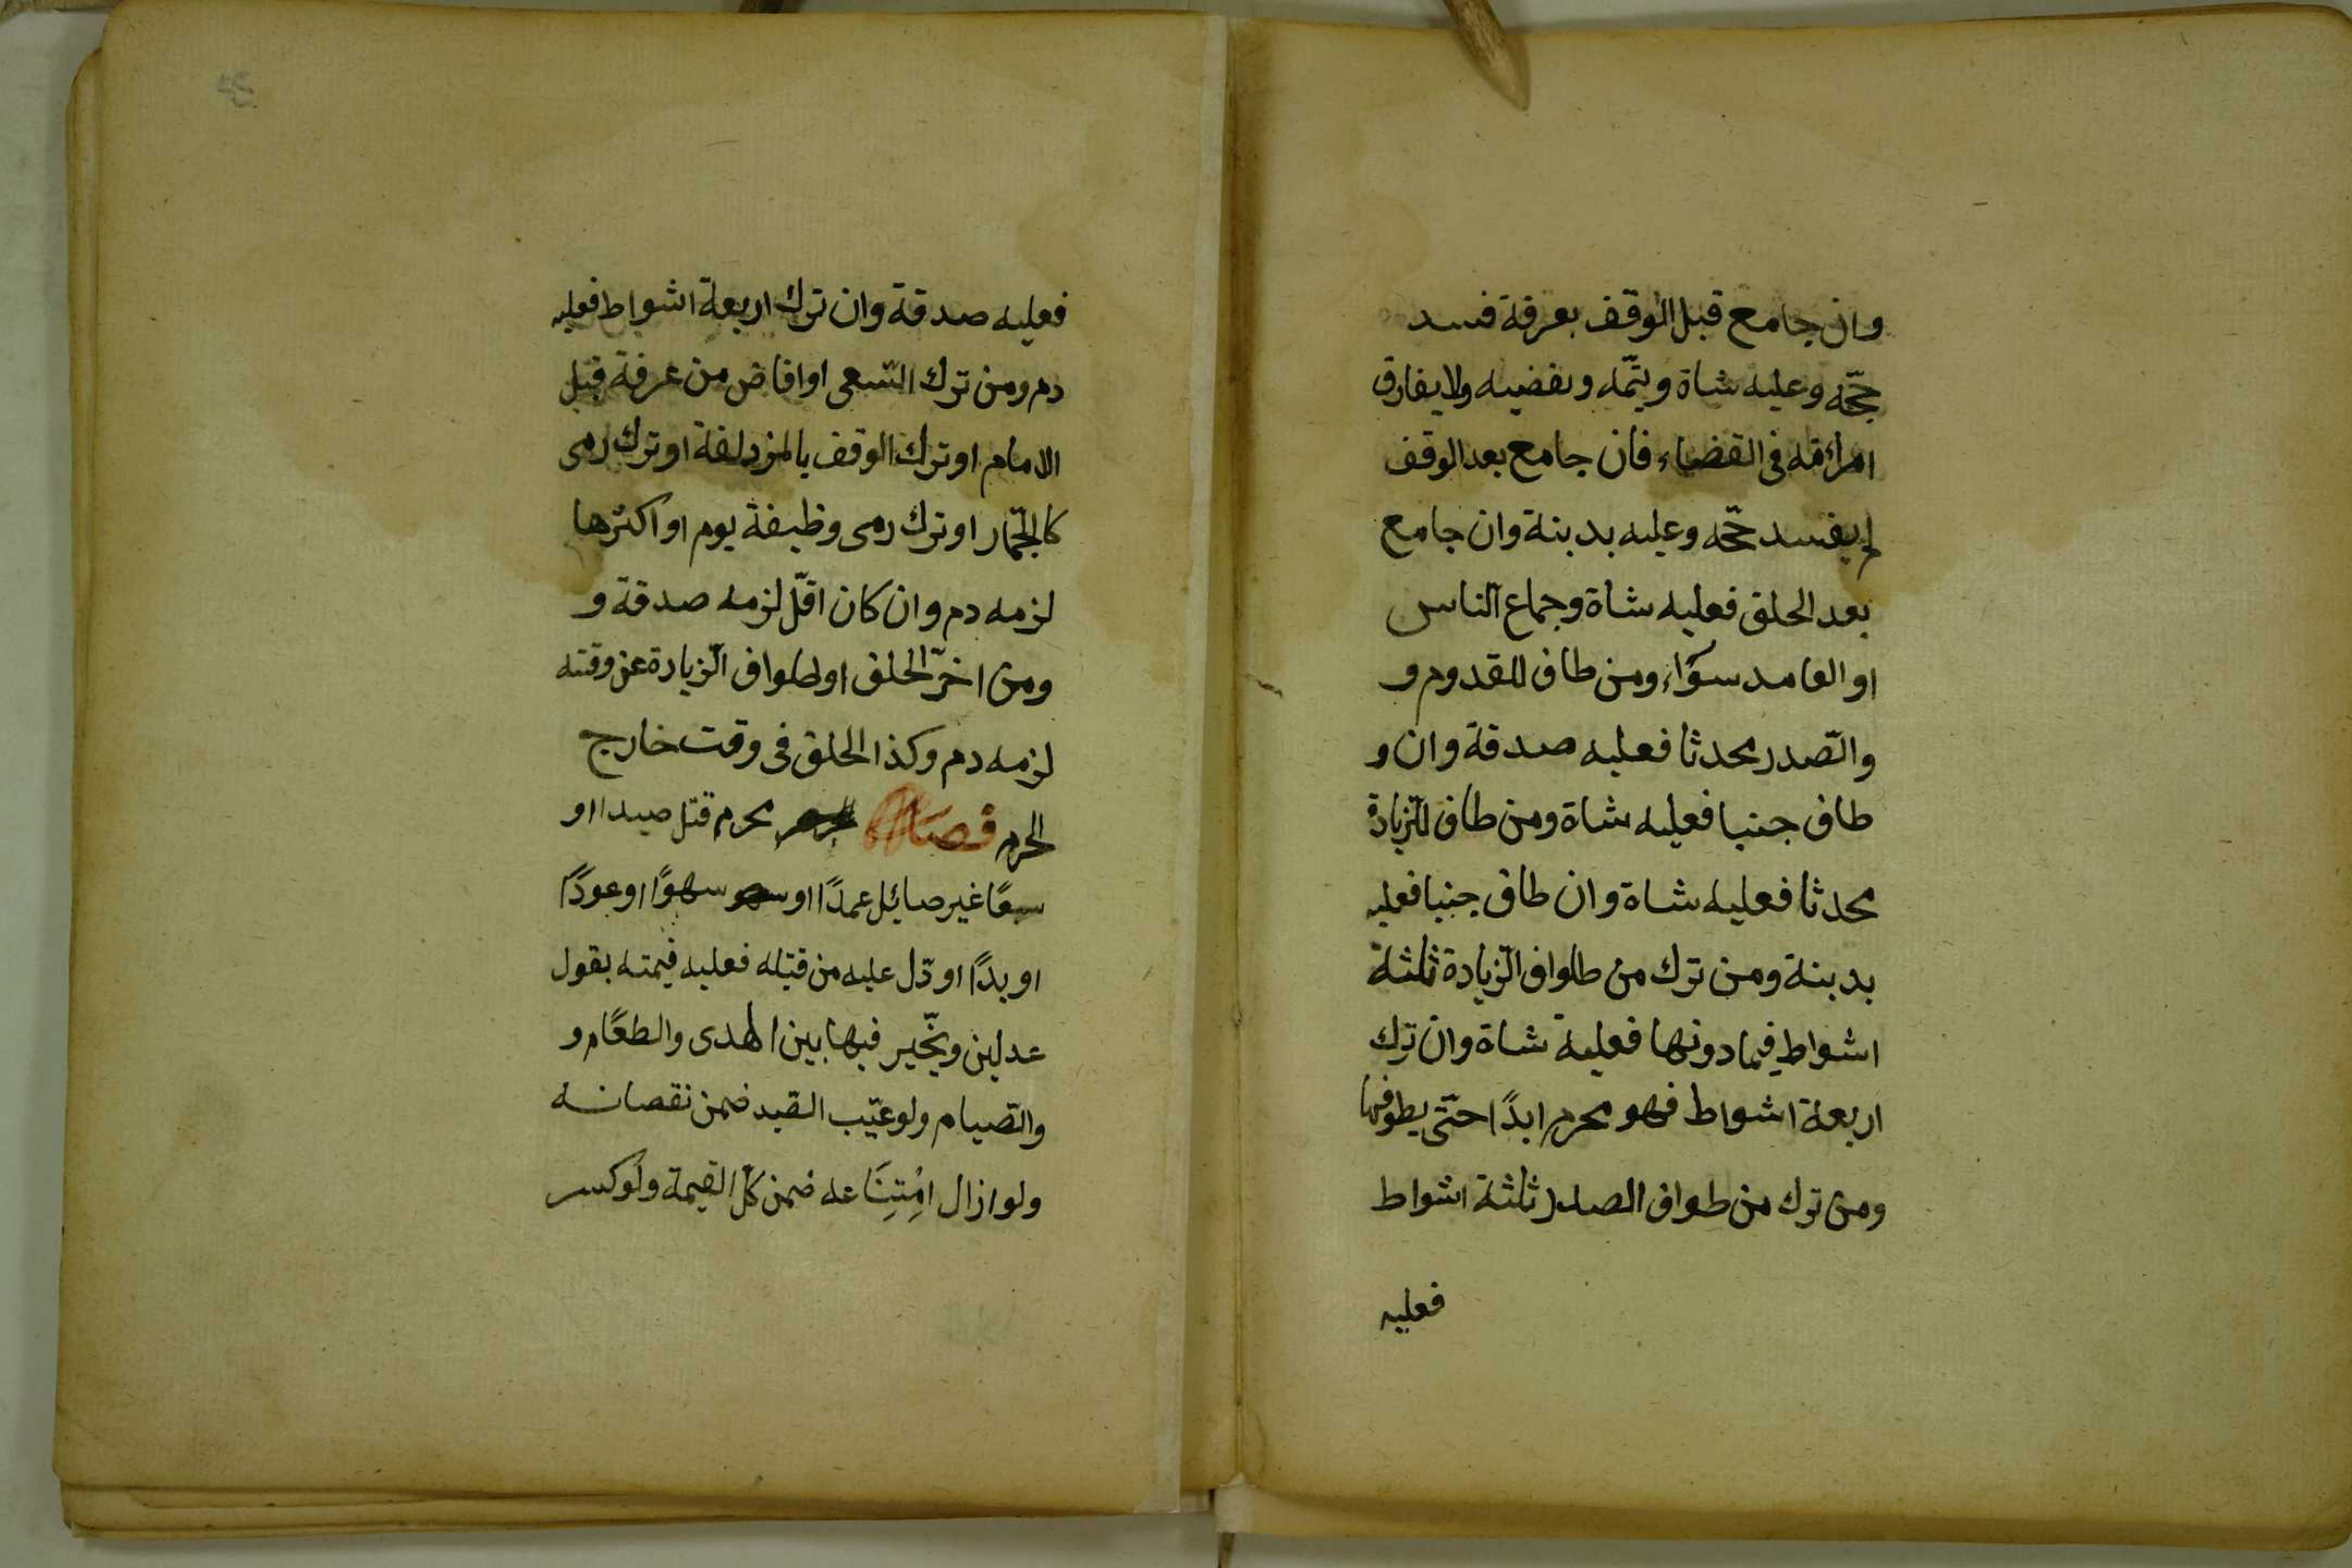 وان جامع قبل الوقف بعرفة فسد
حجّه وعليه شاة ويتمّه ويقضيه ولا يفارق
امرأته فى القضاء، فان جامع بعد الوقف
لم يفسد حجّه وعليه بدينة وان جامع
بعد الحلق فعليه شاة وجماع الناس
او العامد سوآء، ومن طاف للقدوم و
والصّدر محدثا فعليه صدقة وان و
طاف جنبا فعليه شاة ومن طاف للزّيادة
محدثا فعليه شاة وان طاف جنبا فعليه
بدينة ومن ترك من طواف الزّيادة ثلثة
اشواط فيما دونها فعليه شاة وان ترك
اربعة اشواط فهو محرم ابدًا حتّى يطوفها
ومن ترك من طواف الصدر ثلثة اشواط
فعليه
فعليه صدقة وان ترك اربعة اشواط فعليه
دم ومن ترك السّعى او افاض من عرفة قبل
الامام او ترك الوقف بالمزدلفة او ترك رمى
كالجّمار او ترك رمى وظيفة يوم او اكثرها
لزمه دم وان كان اقلّ لزمه صدقة و
ومن اخرّ الحلق او طواف الزّيادة عن وقته
لزمه دم وكذا الحلق فى وقت خارج
الحرم فصل محرم قتل صيدا او
سبعًا غير صائل عمدًا او سهوًا او عودًا
او بدًا او دّل عليه من قتله فعليه قيمته بقول
عدلين ويخّير فيها بين الهدى والطعام و
والصّيام ولو عيّب القيد ضمن نقصانه
ولو ازال امْتِنَاعه ضمن كلّ القيمة ولو كسر